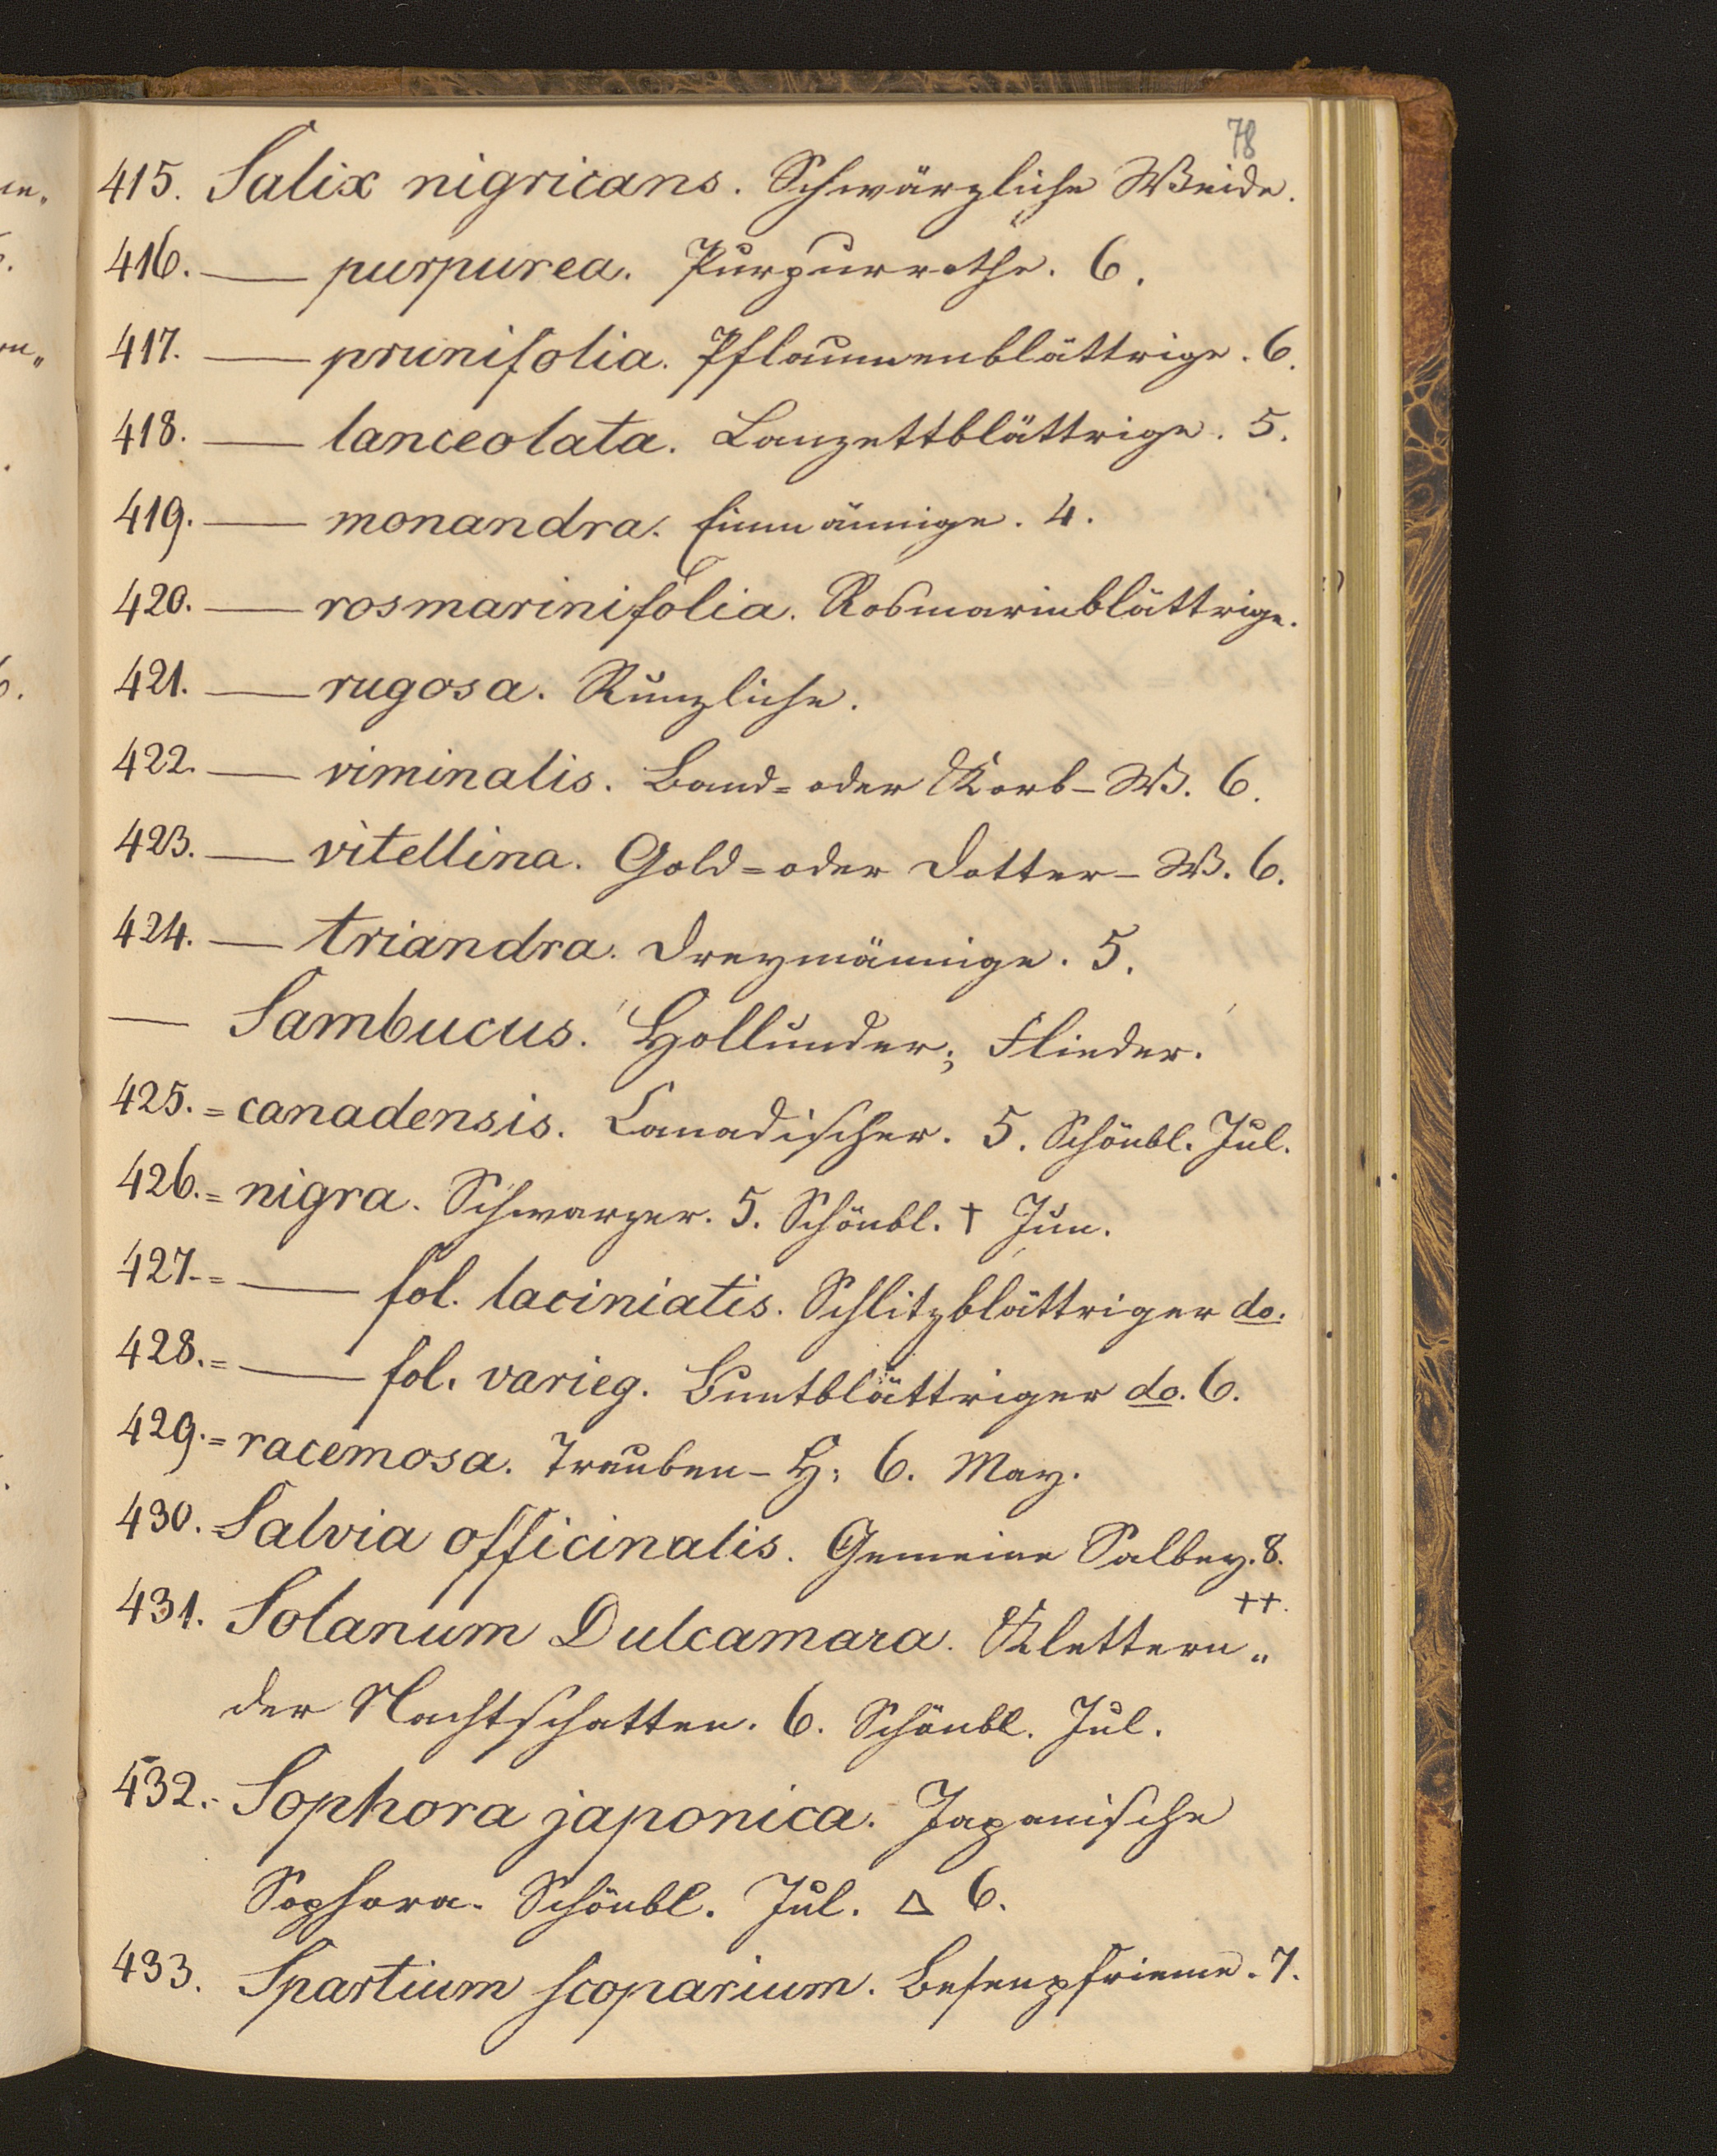 78
415. Salix nigricans. Schwärzliche Weide.
416. — purpurea. Purpurrothe. 6.
417. — prunifolia. Pflaumenblättrige. 6.
418. — lanceolata. Lanzettblättrige. 5.
419. — monandra. Einmännige. 4.
420. — rosmarinifolia. Rosmarinblättrige.
421. — rugosa. Runzliche.
422. — viminalis. Band= oder Korb-W. 6.
423. — vitellina. Gold= oder Dotter-W. 6.
424. — triandra. Dreymännige. 5.
— Sambucus. Hollunder; Flieder.
425. = canadensis. Canadischer. 5. Schönbl. Jul.
426. = nigra. Schwarzer. 5. Schönbl. † Jun.
427. = — fol. laciniatis. Schlitzblättriger do.
428. = — fol. varieg. Buntblättriger do. 6.
429. = racemosa. Trauben-H; 6. May.
430. Salvia officinalis. Gemeine Salbey. 8.
††.
431. Solanum Dulcamara. Klettern„
der Nachtschatten. 6. Schönbl. Jul.
432. Sophora japonica. Japanische
Sophora. Schönbl. Jul. △ 6.
433. Spartium scoparium. Besenpfrieme. 7.